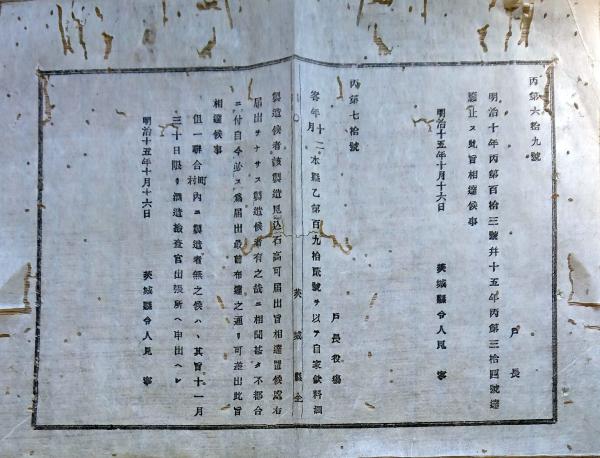 丙第六拾九號
戸長
明治十年丙第百拾三號幷十五年丙第三拾四號達
廢止ス此旨相達候事
明治十五年十月十六日 茨城縣令人見寧
丙第七拾號
戸長役塲
客年十二月本縣乙第百九拾號ヲ以テ自家飲料酒
茨城縣令
製造候者該製造見込石高可届出旨相達置候處右
届出ヲナサス製造候者有之哉ニ相聞甚タ不都合
ニ付自今必ス爲届出最前布達之通リ可差出此旨
相達候事
但一聯合町村内ニ製造者無之候ハヽ其旨十一月
三十日限リ酒造檢査官出張所ヘ申出ヘシ
明治十五年十月十六日 茨城縣令人見寧